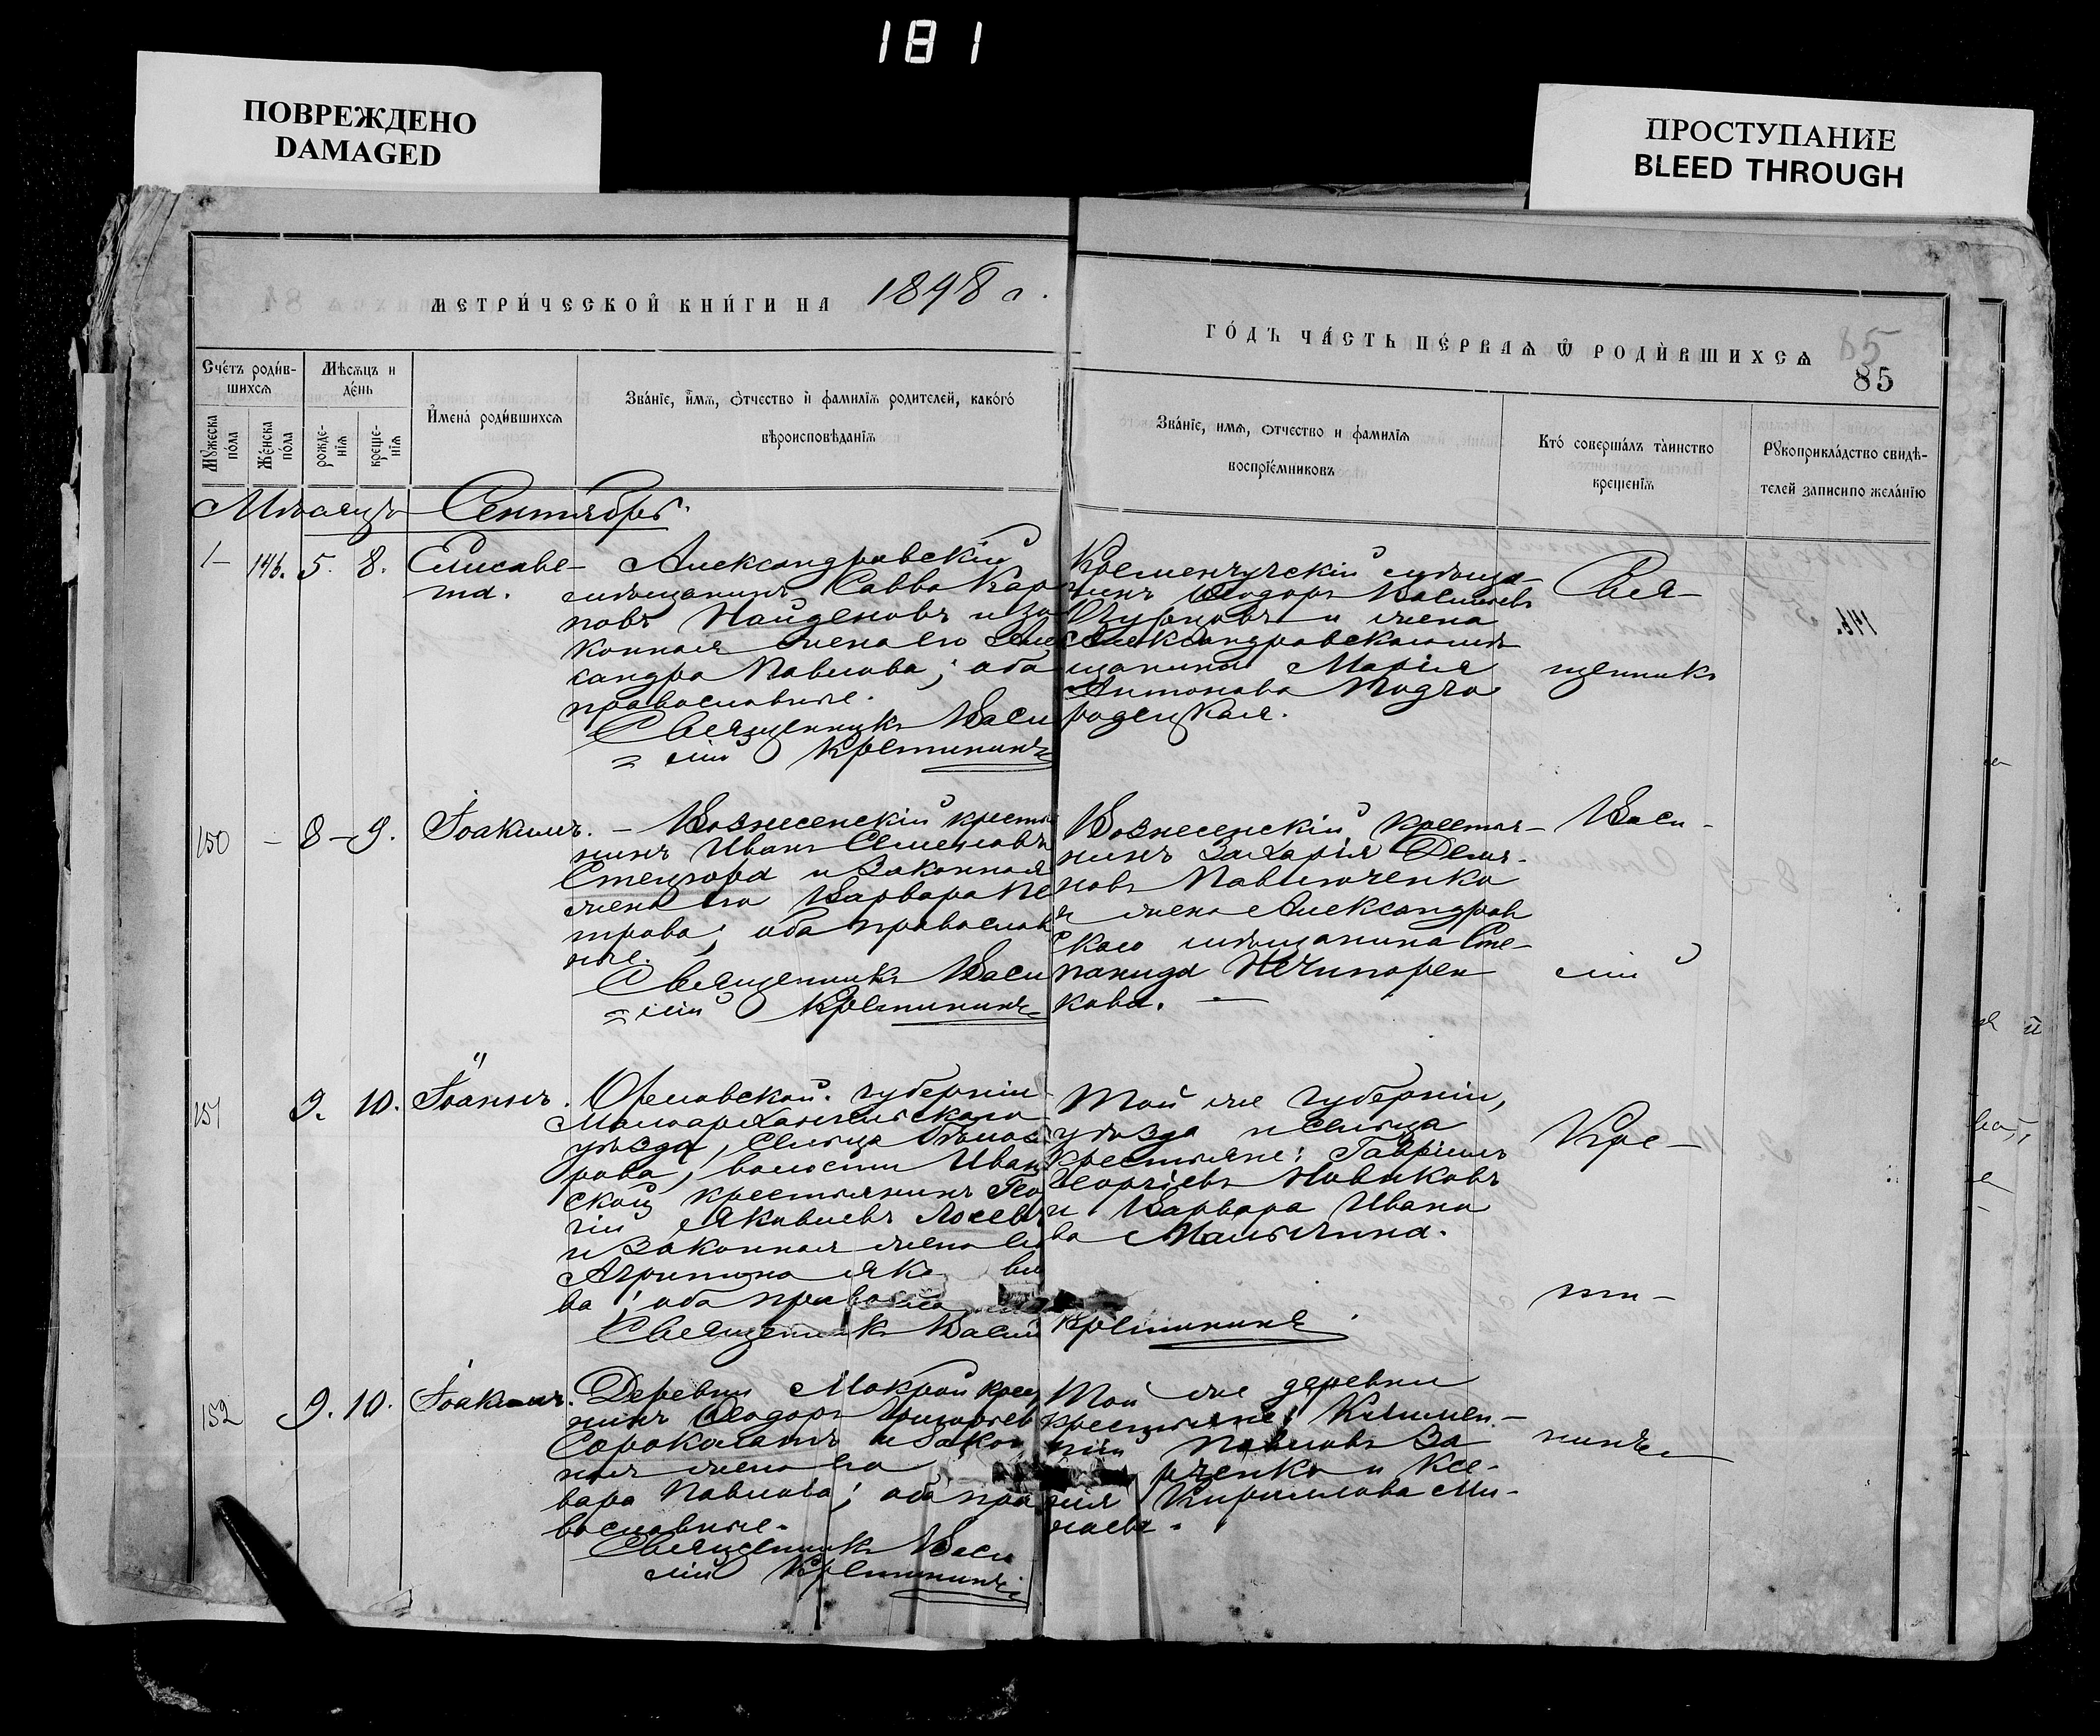 181
ПОВРЕЖДЕНО
DAMAGED
ПРОСТУПАНИЕ
BLEED THROUGH
МЕТРИ́ЧЕСКОЙ КНИ́ГИ НА 1898 г.
ГО́ДЪ ЧА́СТЬ ПЕ́РВАѦ Ѿ РОДИ́ВШИХСѦ
85
85
Сче́тъ роди́в-
шихсѧ
Мѣсѧцъ и
де́нь
Мꙋжеска
по́ла
Же́нска
по́ла
рожде-
нїѧ
креще-
нїѧ
И҆мена̀ роди́вшихсѧ
Зва́нїе, и҆́мѧ, ѻ҆́тчество и҆ фамилїѧ родителей, како́гѡ
вѣроисповѣ́данїѧ
Зва́нїе, имѧ, ѻтчество и фамилїѧ
воспрїе́мниковъ
Кто́ соверша́лъ та́инство
креще́нїѧ
Рꙋкоприкла́дство свидѣ-
телей записи по жела́нїю
Мѣсяцъ Сентябрь.
1 – 146. 5. 8. Елисаве-
та.
Александровскій
мѣщанинъ Савва Кар
повъ Найденовъ и за
конная жена его Алек
сандра Павлова; оба
православные.
Священникъ Васи
лій Крестининъ
Кременчугскій мѣща-
нинъ Ѳеодоръ Васильевъ
и жена
Александровскаго мѣ
щанина Марія
Антонова Подго
родецкая.
Свя-
щенникъ
150 – 8 – 9. Іоакимъ. – Вознесенскій крестья
нинъ Иванъ Семеновъ
Стецюра и законная
жена его Варвара Пе
трова; оба православ
ные.
Священникъ Васи
лій Крестининъ
Вознесенскій крестья-
нинъ Захарія Демья-
новъ Павлюченко
и жена Александров
скаго мѣщанина Сте-
панида Нечипорен
кова. –
Васи-
лій
151 9. 10. Іоаннъ. Орловской губерніи
Малоархангельскаго
уѣзда, сельца
рова, волости Иван
ской крестьянинъ Геор
гій Яковлевъ Лосевъ
и законная жена его
Агрипина Яко вле
ва; оба правосла
Священникъ Васи Крестининъ
Той же губерніи,
уѣзда и сельца
крестьяне: Гавріилъ
Георгіевъ Новиковъ
и Варвара Ивано
ва Мальчина.
Кре-
сти-
152 9. 10. Іоакимъ. Деревни Мокрой крест
нинъ Ѳеодоръ Григорьев
Сорокалатъ и закон
ная жена его
вара Павлова; оба пра
вославные.
Священникъ Васи
лій Крестининъ
Той же деревни
крестьяне: Климен-
тій Павловъ За
рченко и Ксе-
нія Кириллова Ми-
наева.
нинъ
146.